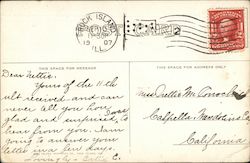 ROCK ISLAND
1907
ILL.
2
THIS SPACE FOR MESSAGE
THIS SPACE FOR ADDRESS ONLY
Dear Nettie.
Yours of the 11th
ult received and can
never tell you how
glad and surprised, I was
to hear from you. I am
going to answer your
letter in a few days
Lovingly
Miss Nettie Mc
Calpella Mendocino Co
California